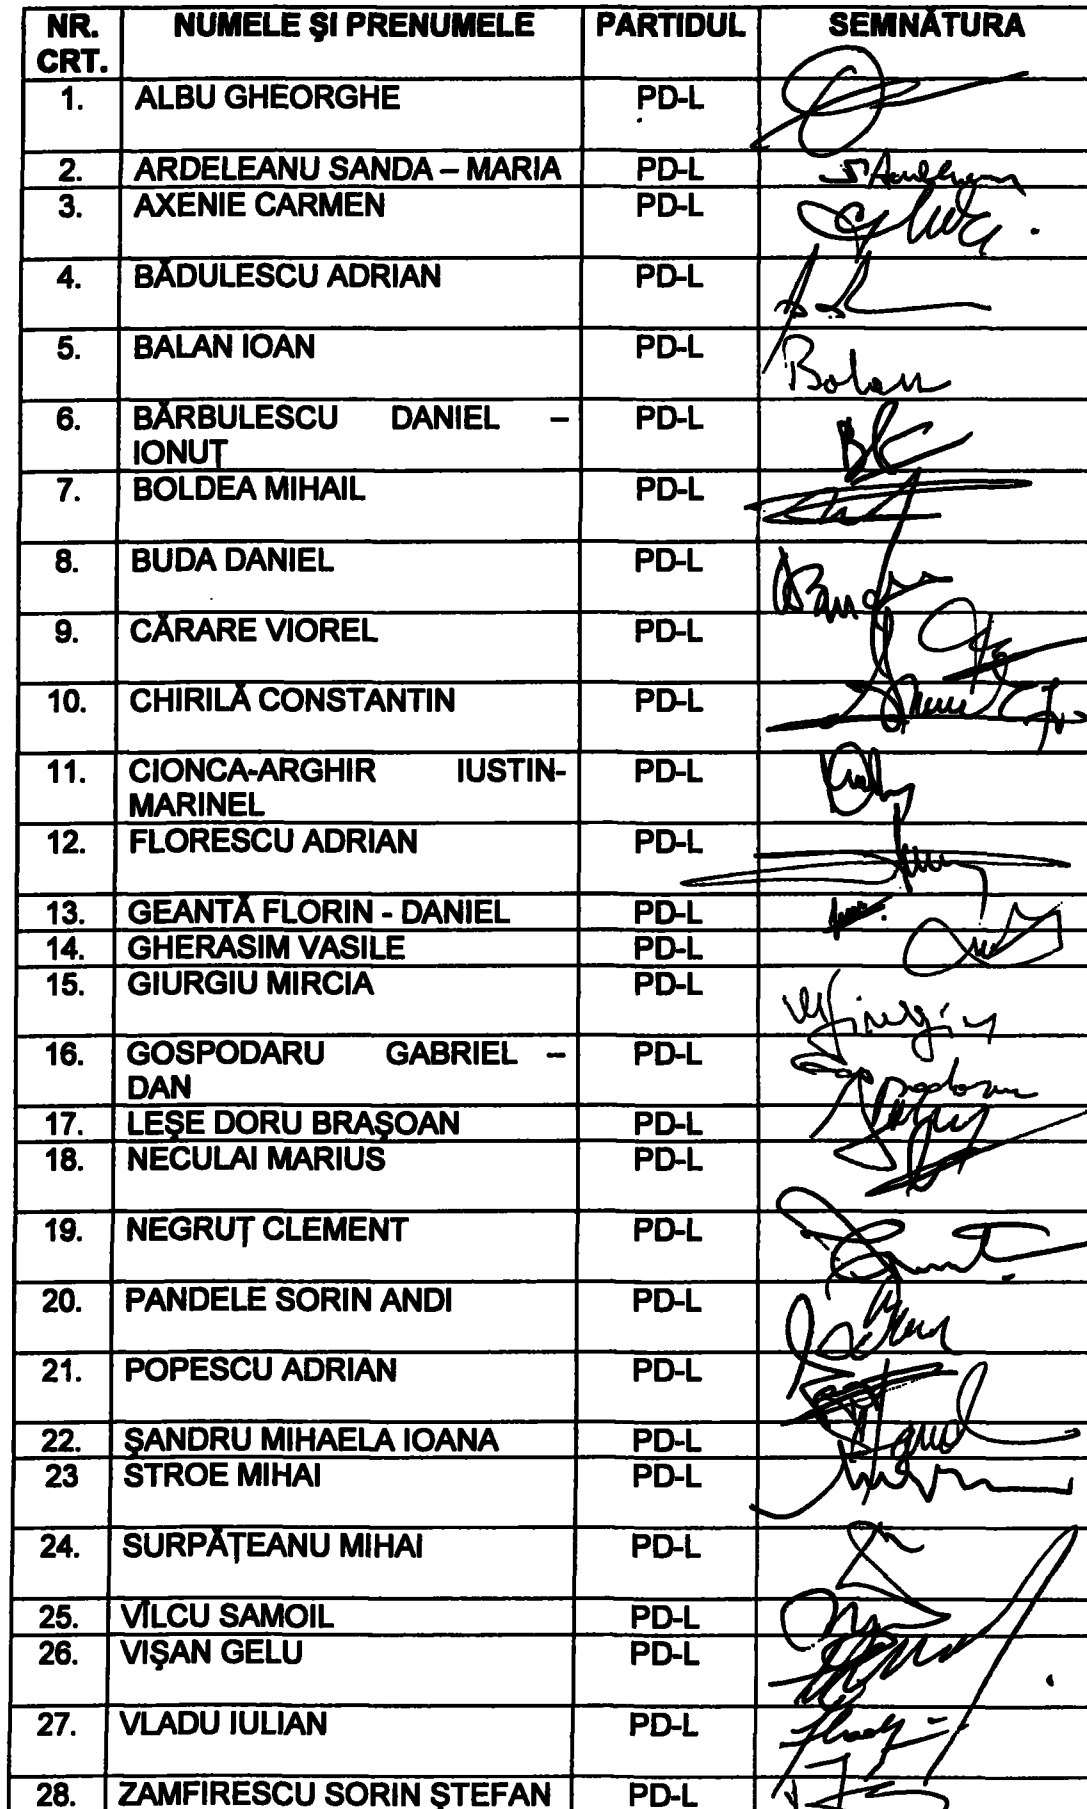 NR. CRT. NUMELE ŞI PRENUMELE PARTIDUL SEMNĂTURA
1. ALBU GHEORGHE PD-L
2. ARDELEANU SANDA – MARIA PD-L
3. AXENIE CARMEN PD-L
4. BĂDULESCU ADRIAN PD-L
5. BALAN IOAN PD-L
6. BĂRBULESCU DANIEL – PD-L
IONUŢ
7. BOLDEA MIHAIL PD-L
8. BUDA DANIEL PD-L
9. CĂRARE VIOREL PD-L
10. CHIRILĂ CONSTANTIN PD-L
11. CIONCA-ARGHIR IUSTIN- PD-L
MARINEL
12. FLORESCU ADRIAN PD-L
13. GEANTĂ FLORIN - DANIEL PD-L
14. GHERASIM VASILE PD-L
15. GIURGIU MIRCIA PD-L
16. GOSPODARU GABRIEL – PD-L
DAN
17. LEŞE DORU BRAŞOAN PD-L
18. NECULAI MARIUS PD-L
19. NEGRUŢ CLEMENT PD-L
20. PANDELE SORIN ANDI PD-L
21. POPESCU ADRIAN PD-L
22. ŞANDRU MIHAELA IOANA PD-L
23 STROE MIHAI PD-L
24. SURPĂŢEANU MIHAI PD-L
25. VÎLCU SAMOIL PD-L
26. VIŞAN GELU PD-L
27. VLADU IULIAN PD-L
28. ZAMFIRESCU SORIN ŞTEFAN PD-L